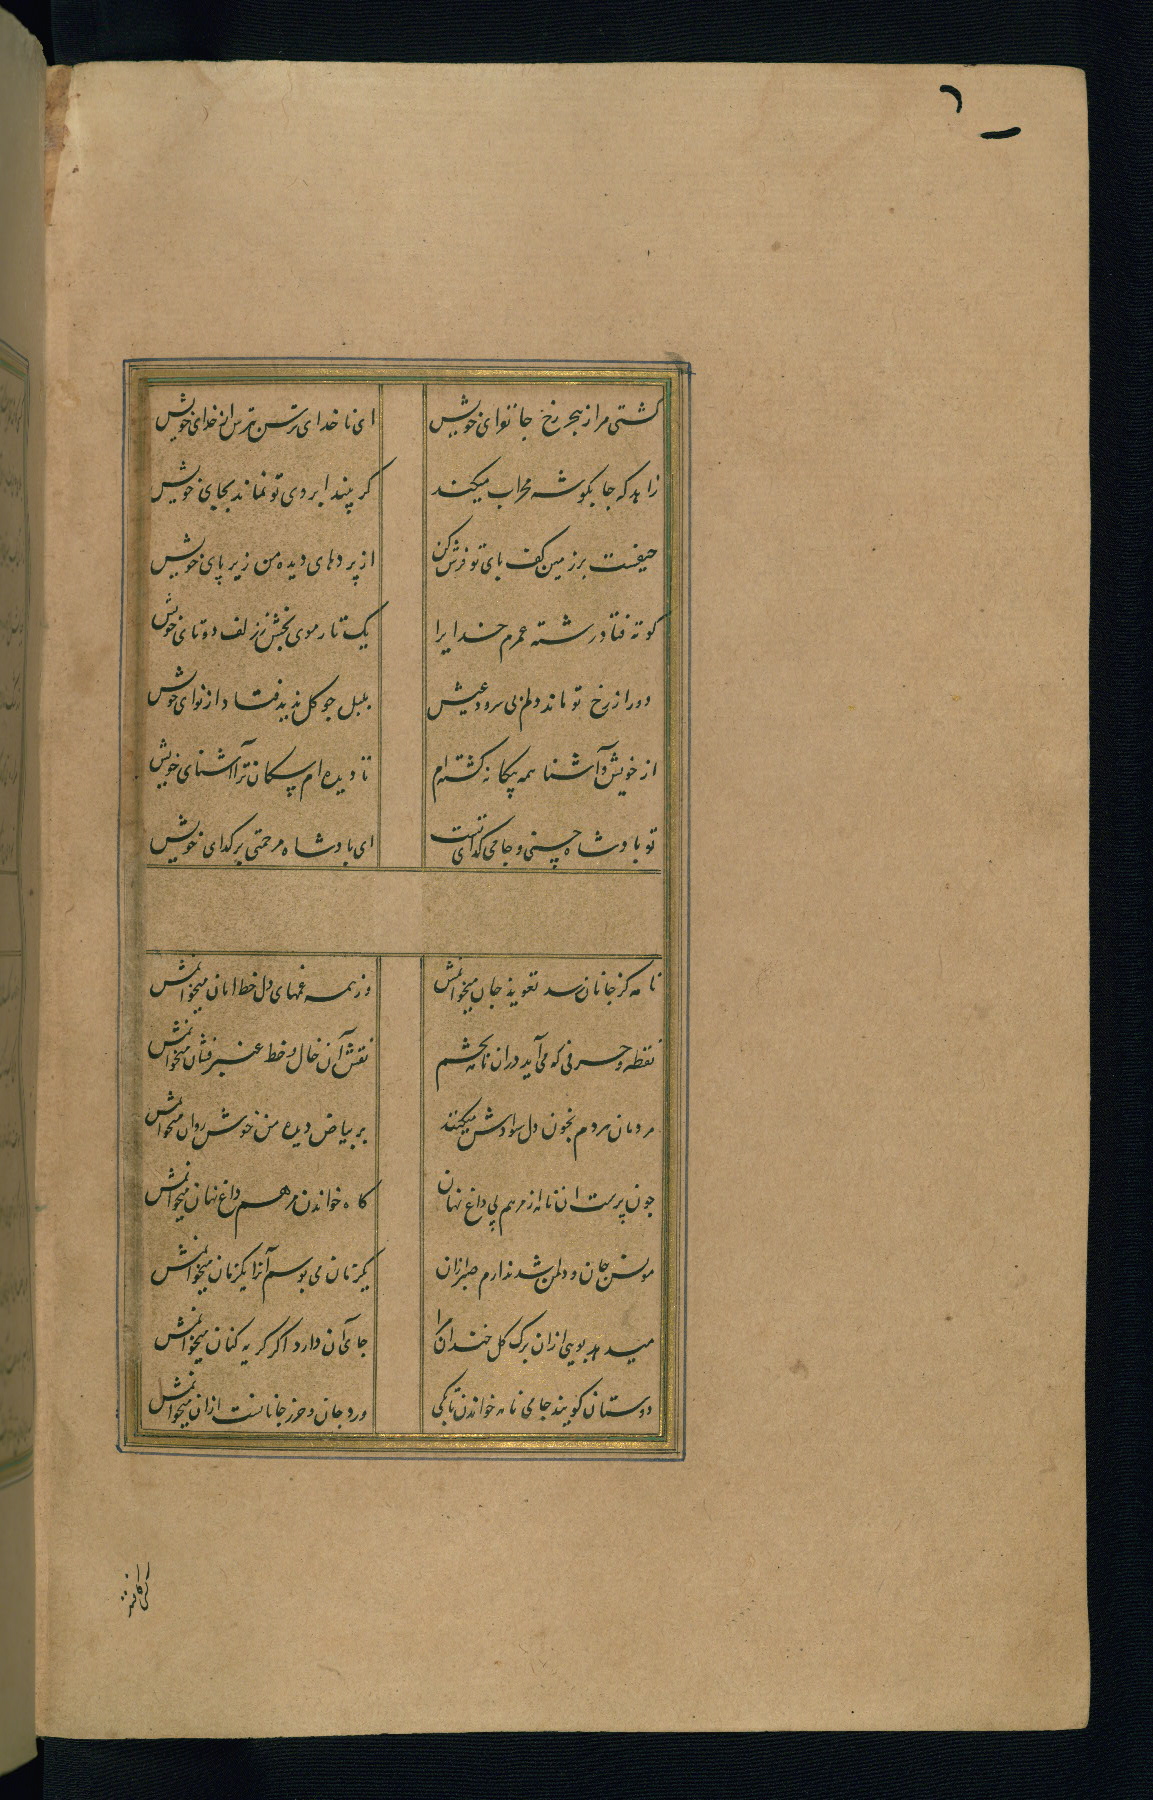 کشتی مرا ز هجر رخ جانفزای خویش
ای ناخدای ترس بترس از خدای خویش
زاهد که جا بکوشه محراب میکند
کر بیند ابروی تو نماند بجای خویش
حیفست بر زمین کف پای تو فرش کن
از پردهای دیده من زیر پای خویش
کوته فتاد رشته عمرم خدایرا
یک تار موی بخش ز زلف دوتای خویش
دور از رخ تو ماند دلم بی سرود عیش
بلبل جو کل ندید فتاد از نوای خویش
از خویش و آشنا همه بیکانه کشته‌ام
تا دیده‌ام سکان ترا آشنای خویش
تو بادشاه حسنی و جامی کدای تست
ای بادشاه مرحمتی بر کدای خویش
نامه کز جانان رسد تعویذ جان میخوانمش
وز همه غمهای دل خط امان میخوانمش
نقطه و حرفی که می‌آید در آن نامه بچشم
نقش آن خال و خط عنبرفشان میخوانمش
مردمان مردم بخون دل سوادش میکنند
بر بیاض دیده من خوش روان میخوانمش
جون پرست ان نامه از مرهم پی داغ نهان
کاه خواندن مرهم داغ نهان میخوانمش
مونس جان و دلمن شد ندارم صبر ازان
یکزمان می بوسم آنرا یکزمان میخوانمش
میدهد بویی ازان برک کل خندان مرا
جای آن دارد اکر کریه کنان میخوانمش
دوستان کویند جامی نامه خواندن تا بکی
ورد جان و حرز جانانست ازان میخوانمش